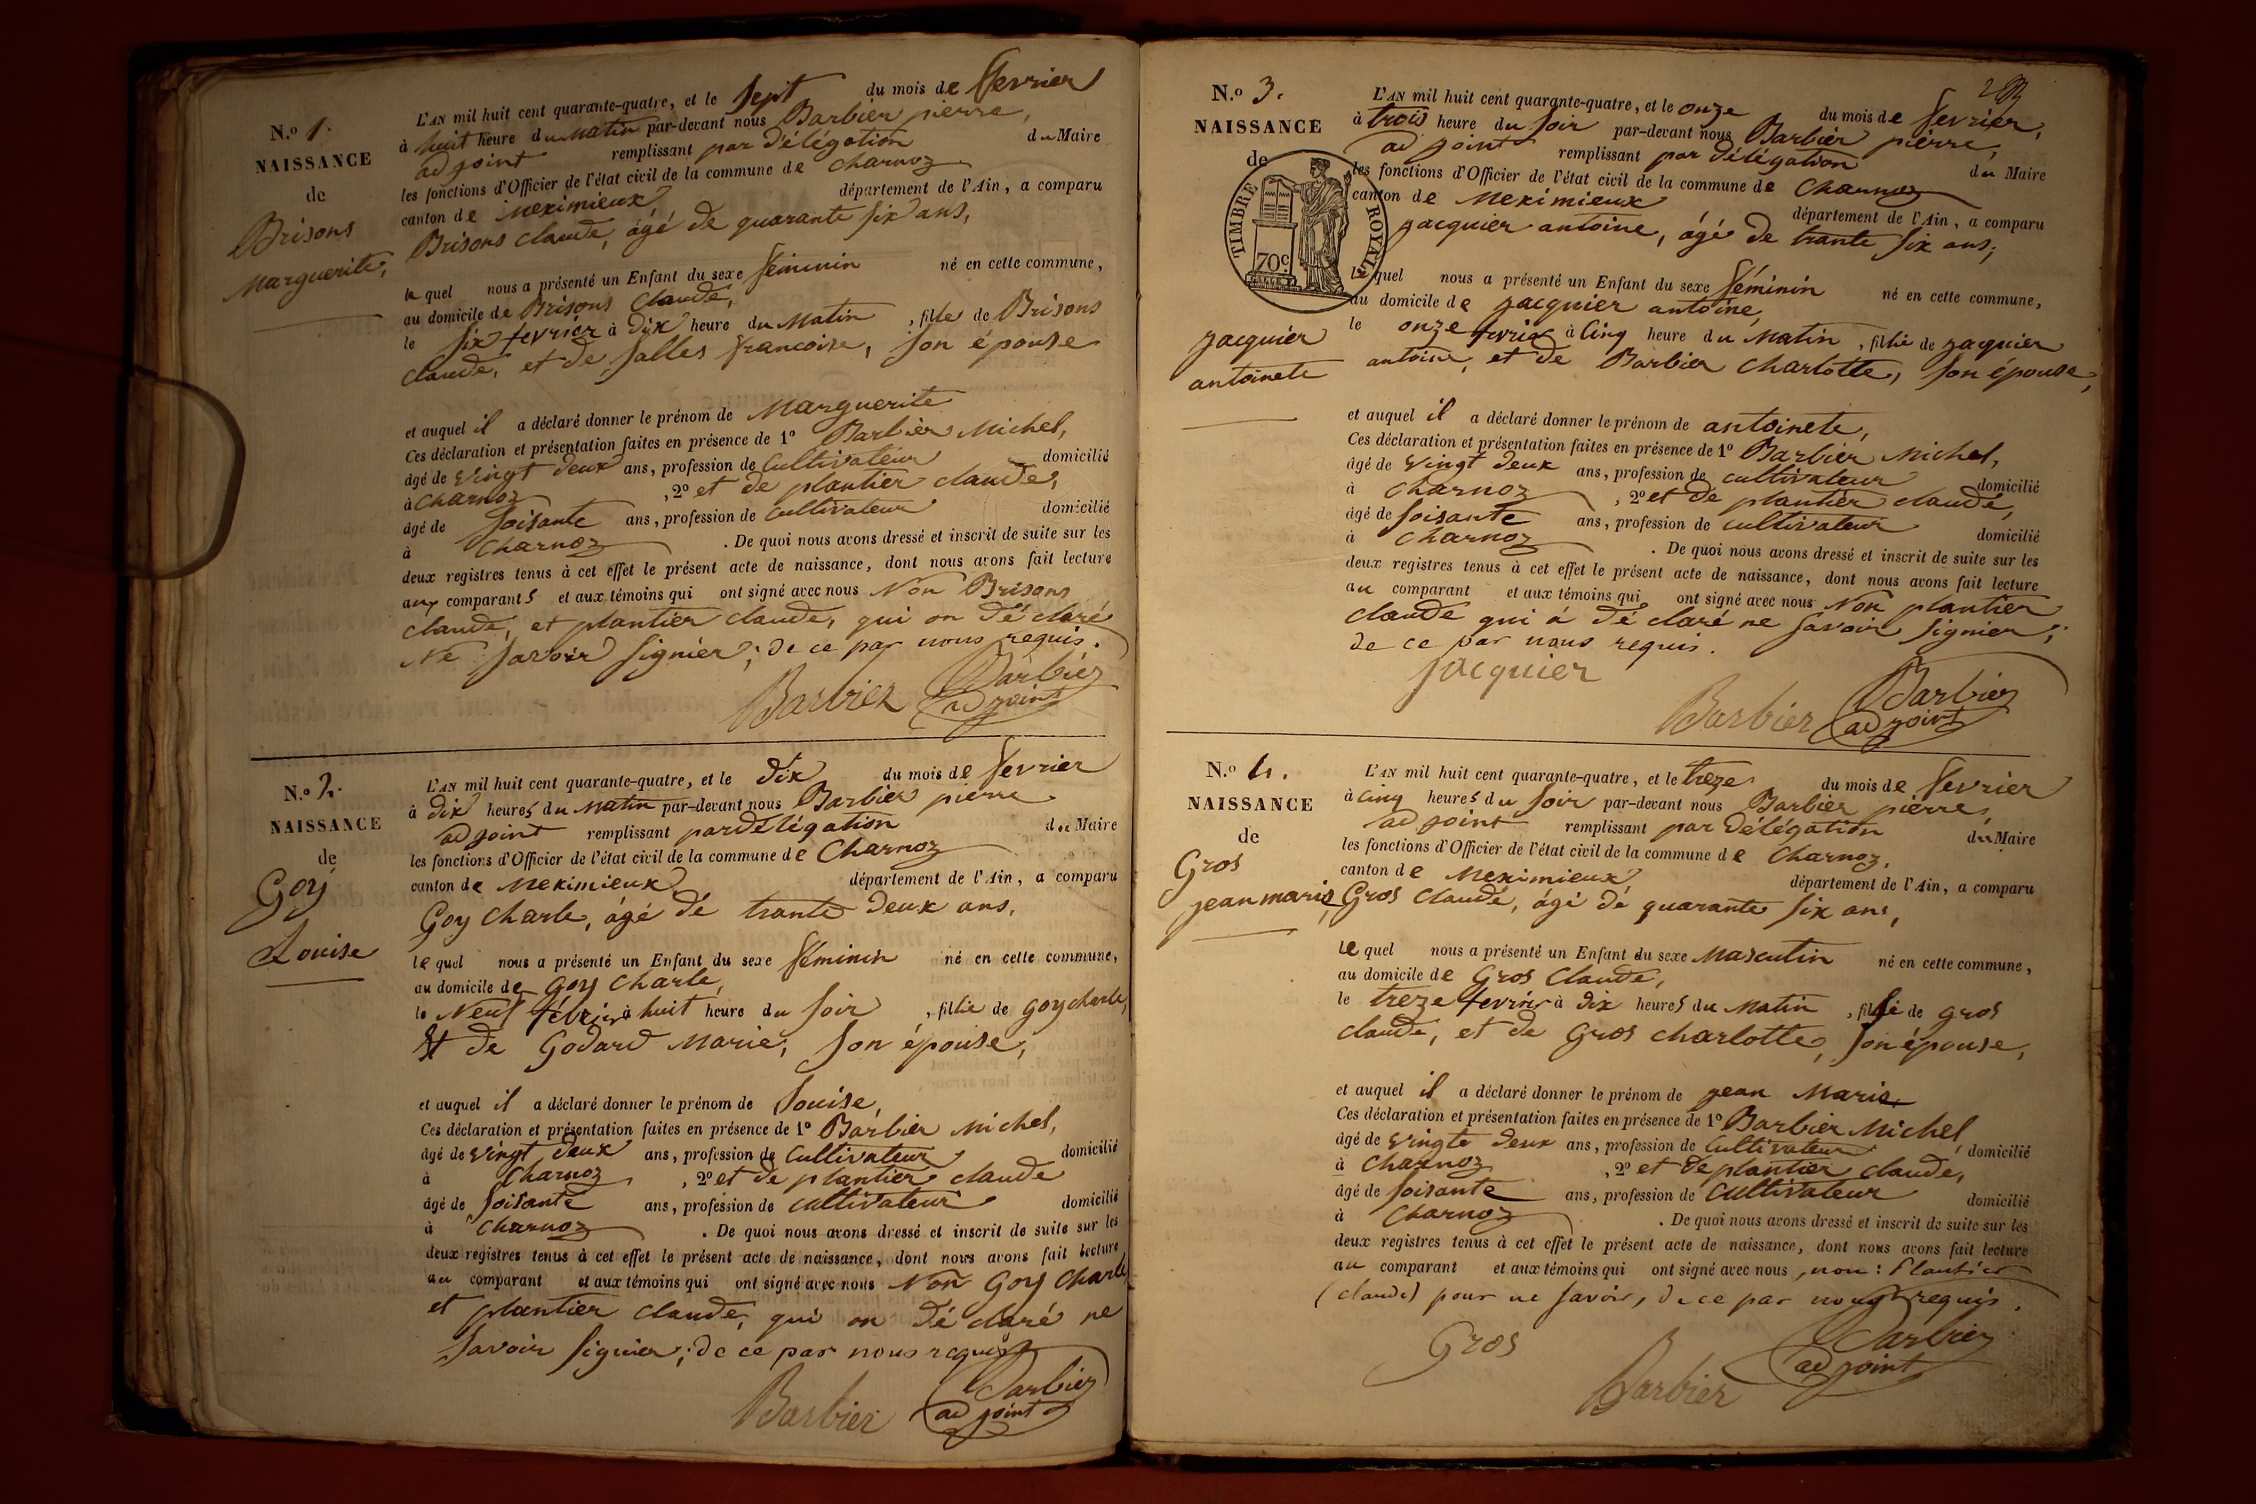 N.o 1.
NAISSANCE
de
Brisons
Marguerite,
L'AN mil huit cent quarante-quatre, et le sept du mois de fevrier
à huit heure du Matin par-devant nous Barbier pierre,
adjoint remplissant par délégation du Maire
les fonctions d'Officier de l'état civil de la commune de Charnoz
canton de Meximieux département de l'Ain, a comparu
Brisons claude, âgé de quarante six ans,
le quel nous a présenté un Enfant du sexe féminin né en cette commune,
au domicile de Brisons Claude,
le six fevrier à dix heure du Matin, fille de Brisons
claude, et de salles francoise, son épouse
et auquel il a déclaré donner le prénom de Marguerite
Ces déclaration et présentation faites en présence de 1o Barbier Michel,
âgé de vingt deux ans, profession de Cultivateur domicilié
à Charnoz, 2o et de plantier claude,
âgé de soisante ans, profession de Cultivateur domicilié
à Charnoz. De quoi nous avons dressé et inscrit de suite sur les
deux registres tenus à cet effet le présent acte de naissance, dont nous avons fait lecture
aux comparants et aux témoins qui ont signé avec nous Non Brisons
claude, et plantier claude, qui on dé claré
Ne savoir signier; de ce par nous requis.
Barbier Barbier
adjoint
N.o 2.
NAISSANCE
de
Goy
Louise
L'AN mil huit cent quarante-quatre, et le dix du mois de fevrier
à dix heures du Matin par-devant nous Barbier pierre
adjoint remplissant par délégation du Maire
les fonctions d'Officier de l'état civil de la commune de Charnoz
canton de Meximieux département de l'Ain, a comparu
Goy Charle, âgé dé trante deux ans,
le quel nous a présenté un Enfant du sexe féminin né en cette commune,
au domicile de Goy Charle,
le Neuf février à huit heure du soir, fille de goy charle,
Et de Godard Marie, son épouse,
et auquel il a déclaré donner le prénom de Louise,
Ces déclaration et présentation faites en présence de 1o Barbier Michel,
âgé de vingt deux ans, profession de Cultivateur domicilié
à Charnoz, 2o et de plantier claude
âgé de soisante ans, profession de Cultivateur domicilié
à Charnoz. De quoi nous avons dressé et inscrit de suite sur les
deux registres tenus à cet effet le présent acte de naissance, dont nous avons fait lecture
au comparant et aux témoins qui ont signé avec nous Non Goy Charle
et plantier claude, qui on dé claré ne
savoir signier; de ce par nous requis
Barbier Barbier
adjoint
N.o 3.
NAISSANCE
de
TIMBRE ROYAL
70c.
jacquier
antoinete
L'AN mil huit cent quarante-quatre, et le onze du mois de fevrier,
à trois heure du soir par-devant nous Barbier pierre,
adjoint remplissant par délégation du Maire
les fonctions d'Officier de l'état civil de la commune de Charnoz
canton de Meximieux département de l'Ain, a comparu
jacquier antoine, âgé de trante six ans,
le quel nous a présenté un Enfant du sexe féminin né en cette commune,
au domicile de jacquier antoine,
le onze fevrier à Cinq heure du Matin, fille de jaquier
antoine, et de Barbier Charlotte, son épouse,
et auquel il a déclaré donner le prénom de antoinete,
Ces déclaration et présentation faites en présence de 1o Barbier Michel,
âgé de vingt deux ans, profession de cultivateur domicilié
à Charnoz, 2o et de plantier claude,
âgé de soisante ans, profession de cultivateur domicilié
à Charnoz. De quoi nous avons dressé et inscrit de suite sur les
deux registres tenus à cet effet le présent acte de naissance, dont nous avons fait lecture
au comparant et aux témoins qui ont signé avec nous Non plantier
claude qui à dé claré ne savoir signier;
de ce par nous requis.
jacquier
Barbier Barbier
adjoint
N.o 4.
NAISSANCE
de
Gros
jean marie,
L'AN mil huit cent quarante-quatre, et le treze du mois de fevrier
à cinq heures du soir par-devant nous Barbier pierre,
adjoint remplissant par délégation du Maire
les fonctions d'Officier de l'état civil de la commune de Charnoz,
canton de Meximieux département de l'Ain, a comparu
Gros Claude, âgé dé quarante six ans,
le quel nous a présenté un Enfant du sexe Masculin né en cette commune,
au domicile de Gros Claude,
le treze fevrier à dix heures du Matin, fils de gros
claude, et de Gros charlotte, son épouse,
et auquel il a déclaré donner le prénom de jean Marie,
Ces déclaration et présentation faites en présence de 1o Barbier Michel,
âgé de vingte deux ans, profession de Cultivateur domicilié
à Charnoz, 2o et de plantier claude,
âgé de soisante ans, profession de Cultivateur domicilié
à Charnoz. De quoi nous avons dressé et inscrit de suite sur les
deux registres tenus à cet effet le présent acte de naissance, dont nous avons fait lecture
au comparant et aux témoins qui ont signé avec nous, non: Plantier
(claude) pour ne savoir, de ce par nous requis.
Gros
Barbier Barbier
adjoint